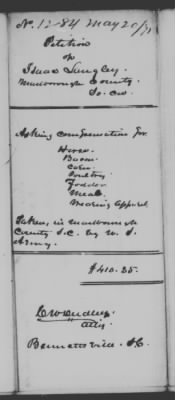 No. 1284 May 20/71
Petition
of
Isaac Langley.
Marlborough County
So. Ca.
Asking compensation for
Horse.
Bacon.
Corn.
Poultry.
Fodder
Meal.
Wearing Apparel
Taken in Marlborough
County S.C. by U.S.
Army.
$410.35.
C W Dudley.
Atty.
Bennettsville. S.C.